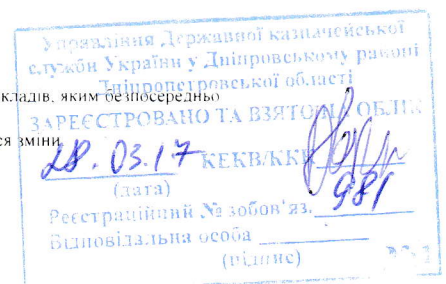 Управління Державної казначейської
служби України у Дніпровському районі
Дніпропетровської області
кладів, яким безпосередньо
ЗАРЕЄСТРОВАНО ТА ВЗЯТО НА ОБЛІК
ся зміни
28.03.17 КЕКВ/ККК
(дата)
981
Реєстраційний № зобов'яз.
Відповідальна особа
(підпис)